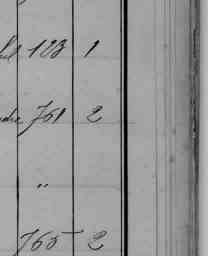 123 1
761 2
"
765 2